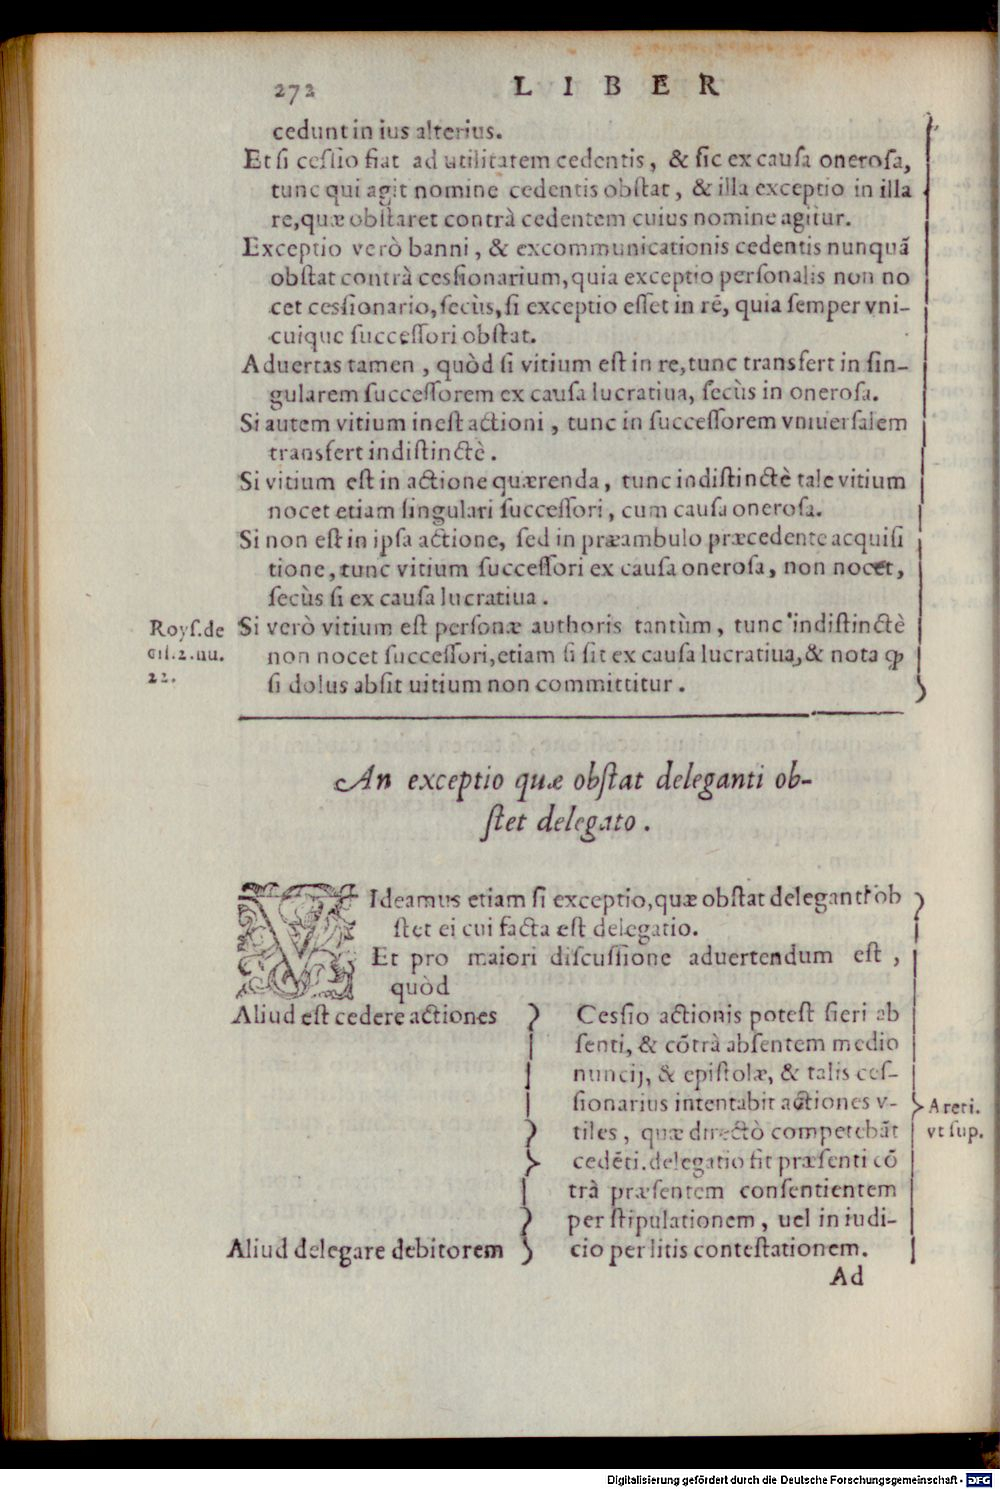 272 LIBER
cedunt in ius alterius.
Et si cessio fiat ad utilitatem cedentis, & sic ex causa onerosa,
tunc qui agit nomine cedentis obstat, & illa exceptio in illa
re, quæ obstaret contrà cedentem cuius nomine agitur.
Exceptio verò banni, & excommunicationis cedentis nunquã
obstat contrà cessionarium, quia exceptio personalis non no
cet cessionario, secùs, si exceptio esset in rē, quia semper vni-
cuique successori obstat.
Aduertas tamen, quòd si vitium est in re, tunc transfert in sin-
gularem successorem ex causa lucratiua, secùs in onerosa.
Si autem vitium inest actioni, tunc in successorem vniuersalem
transfert indistinctè.
Si vitium est in actione quærenda, tunc indistinctè tale vitium
nocet etiam singulari successori, cum causa onerosa.
Si non est in ipsa actione, sed in præambulo præcedente acquisi
tione, tunc vitium successori ex causa onerosa, non nocet,
secùs si ex causa lucratiua.
Roys. de
cis. 2. nu.
22.
Si verò vitium est personæ authoris tantùm, tunc indistinctè
non nocet successori, etiam si sit ex causa lucratiua, & nota ꝙ
si dolus absit uitium non committitur.
An exceptio quæ obstat deleganti ob-
stet delegato.
VIdeamus etiam si exceptio, quæ obstat deleganti ob
stet ei cui facta est delegatio.
Et pro maiori discussione aduertendum est,
quòd
Aliud est cedere actiones
Aliud delegare debitorem
Cessio actionis potest fieri ab
senti, & cōtrà absentem medio
nuncij, & epistolæ, & talis ces-
sionarius intentabit actiones v-
tiles, quæ directò competebãt
cedēti. delegatio fit præsenti cō
trà præsentem consentientem
per stipulationem, uel in iudi-
cio per litis contestationem.
Areti.
vt sup.
Ad
Digitalisierung gefördert durch die Deutsche Forschungsgemeinschaft - DFG